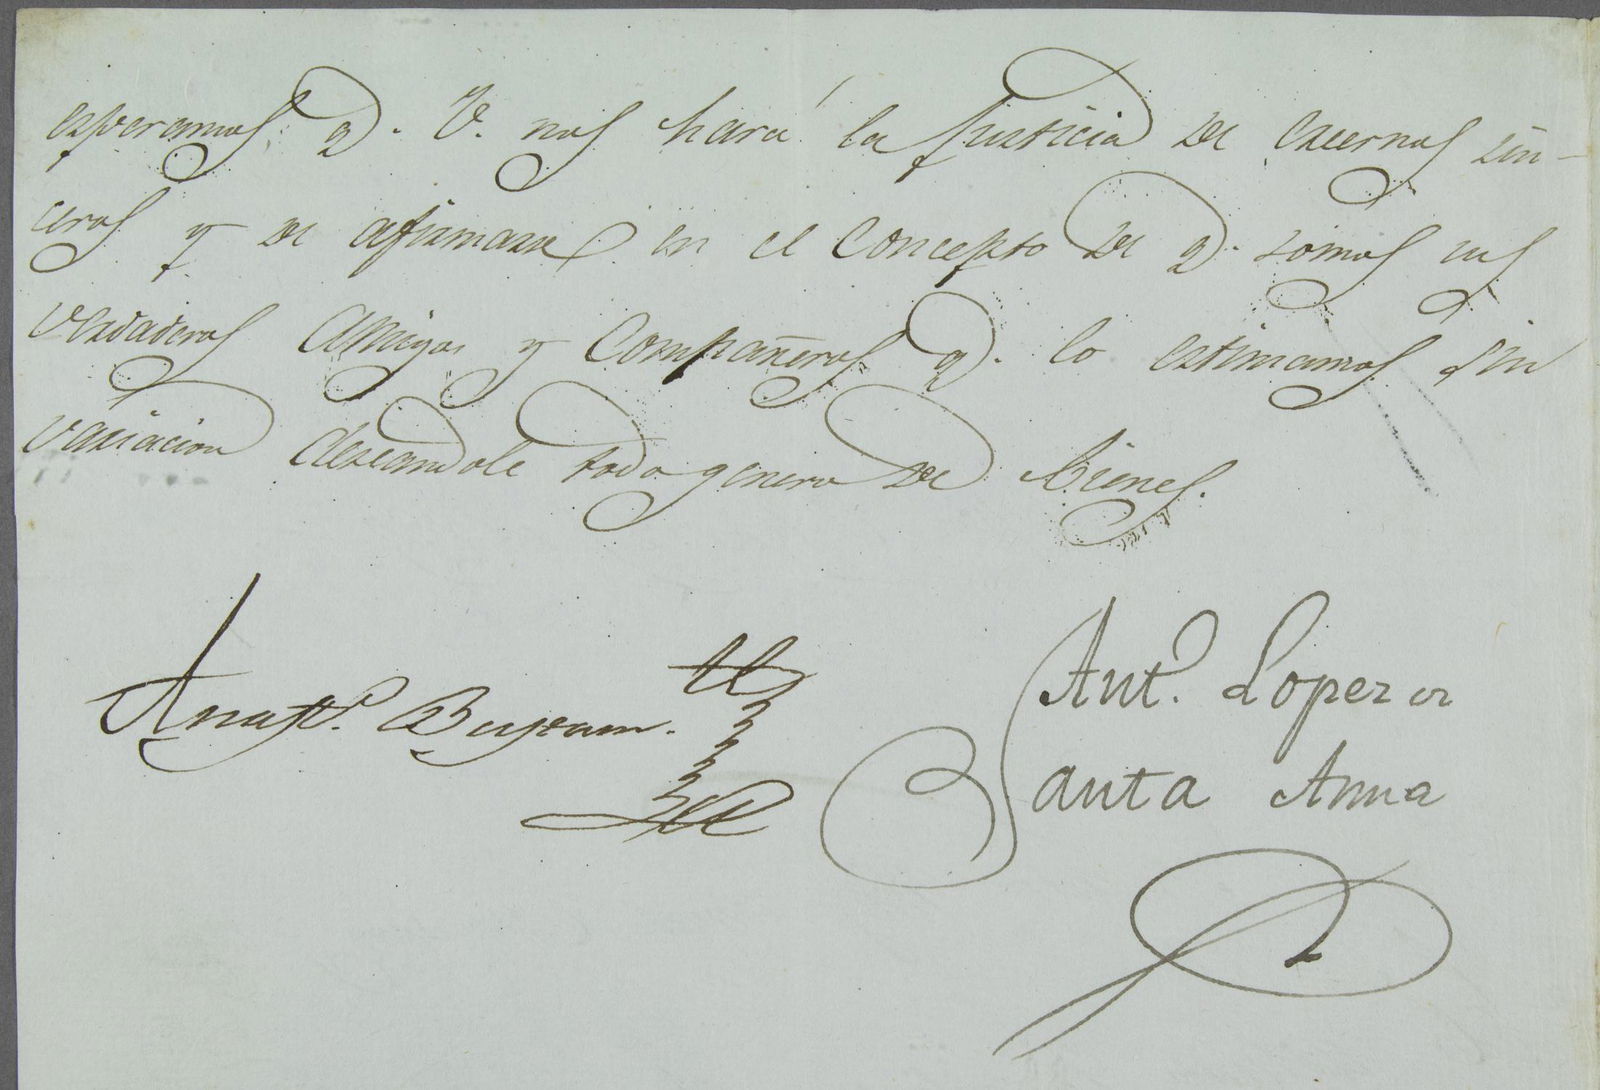 esperamos q.e V. nos hará la Justicia de creernos sin-
ceros y de afirmarse en el Concepto de q.e somos sus
verdaderos Amigos y Compañeros q.e lo estimamos sin
variacion deseandole todo genero de bienes.
Anast.o Bustam.te
Ant.o Lopez de
Santa Anna